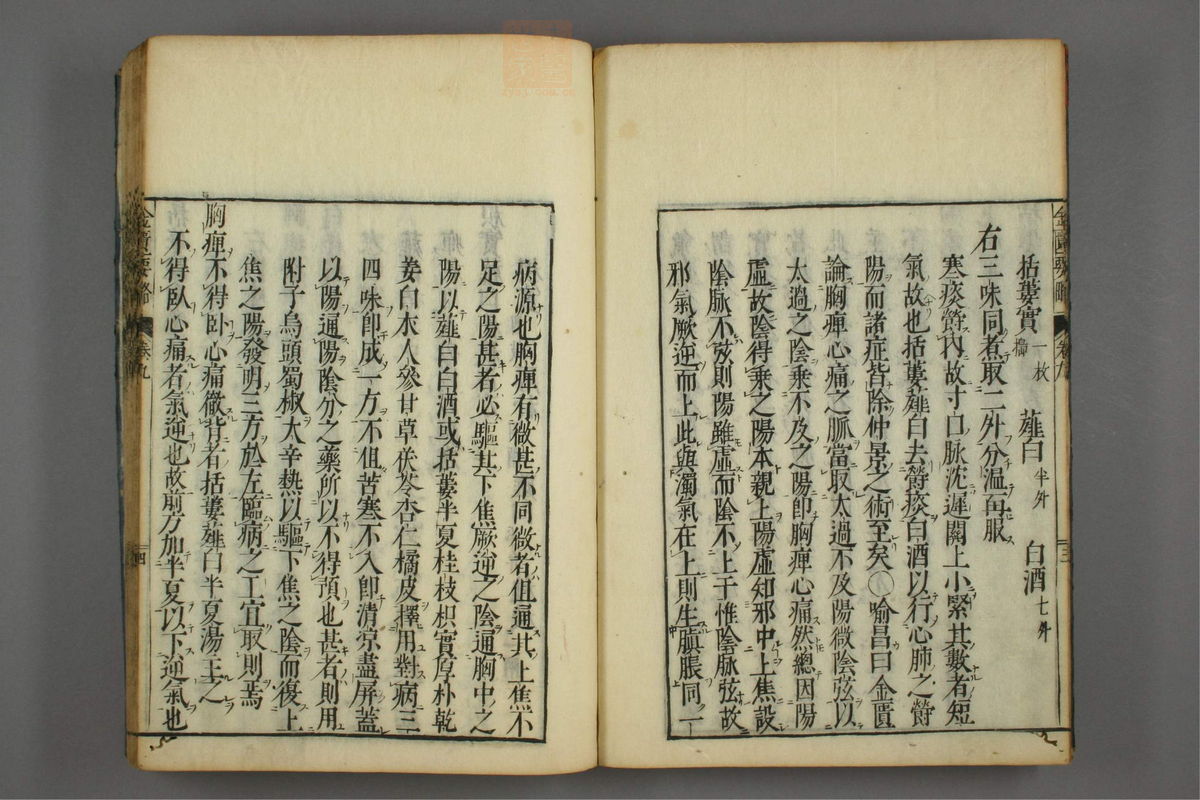 括蔞實一枚搗　薤白半升　白酒七升
右三味同煮取二升分温再服
寒痰窒內故寸口脉沈遲關上小緊其數者短
氣故也括蔞薤白去窒痰白酒以行心肺之窒
陽而諸症皆除仲景之術至矣○喻昌曰金匱
論胸痺心痛之脈當取太過不及陽微陰弦以
太過之陰乘不及之陽即胸痺心痛然總因陽
虛故陰得乘之陽本親上陽虛知邪中上焦設
陰脈不弦則陽雖虛而陰不上干惟陰脉弦故
邪氣厥逆而上此與濁氣在上則生䐜脹同一
金匱要略　卷九　三
病源也胸痺有微甚不同微者但通其上焦不
足之陽甚者必驅其下焦厥逆之陰通胸中之
陽以薤白白酒或括蔞半夏桂枝枳實厚朴乾
姜白朮人參甘草茯苓杏仁橘皮擇用對病三
四味即成一方不但苦寒不入即清凉盡屏蓋
以陽通陽陰分之藥所以不得預也甚者則用
附子烏頭蜀椒大辛熱以驅下焦之陰而復上
焦之陽發明三方於左臨病之工宜取則焉
胸痺不得卧心痛徹背者括蔞薤白半夏湯主之
不得臥心痛者氣逆也故前方加半夏以下逆氣也
金匱要略　卷九　四